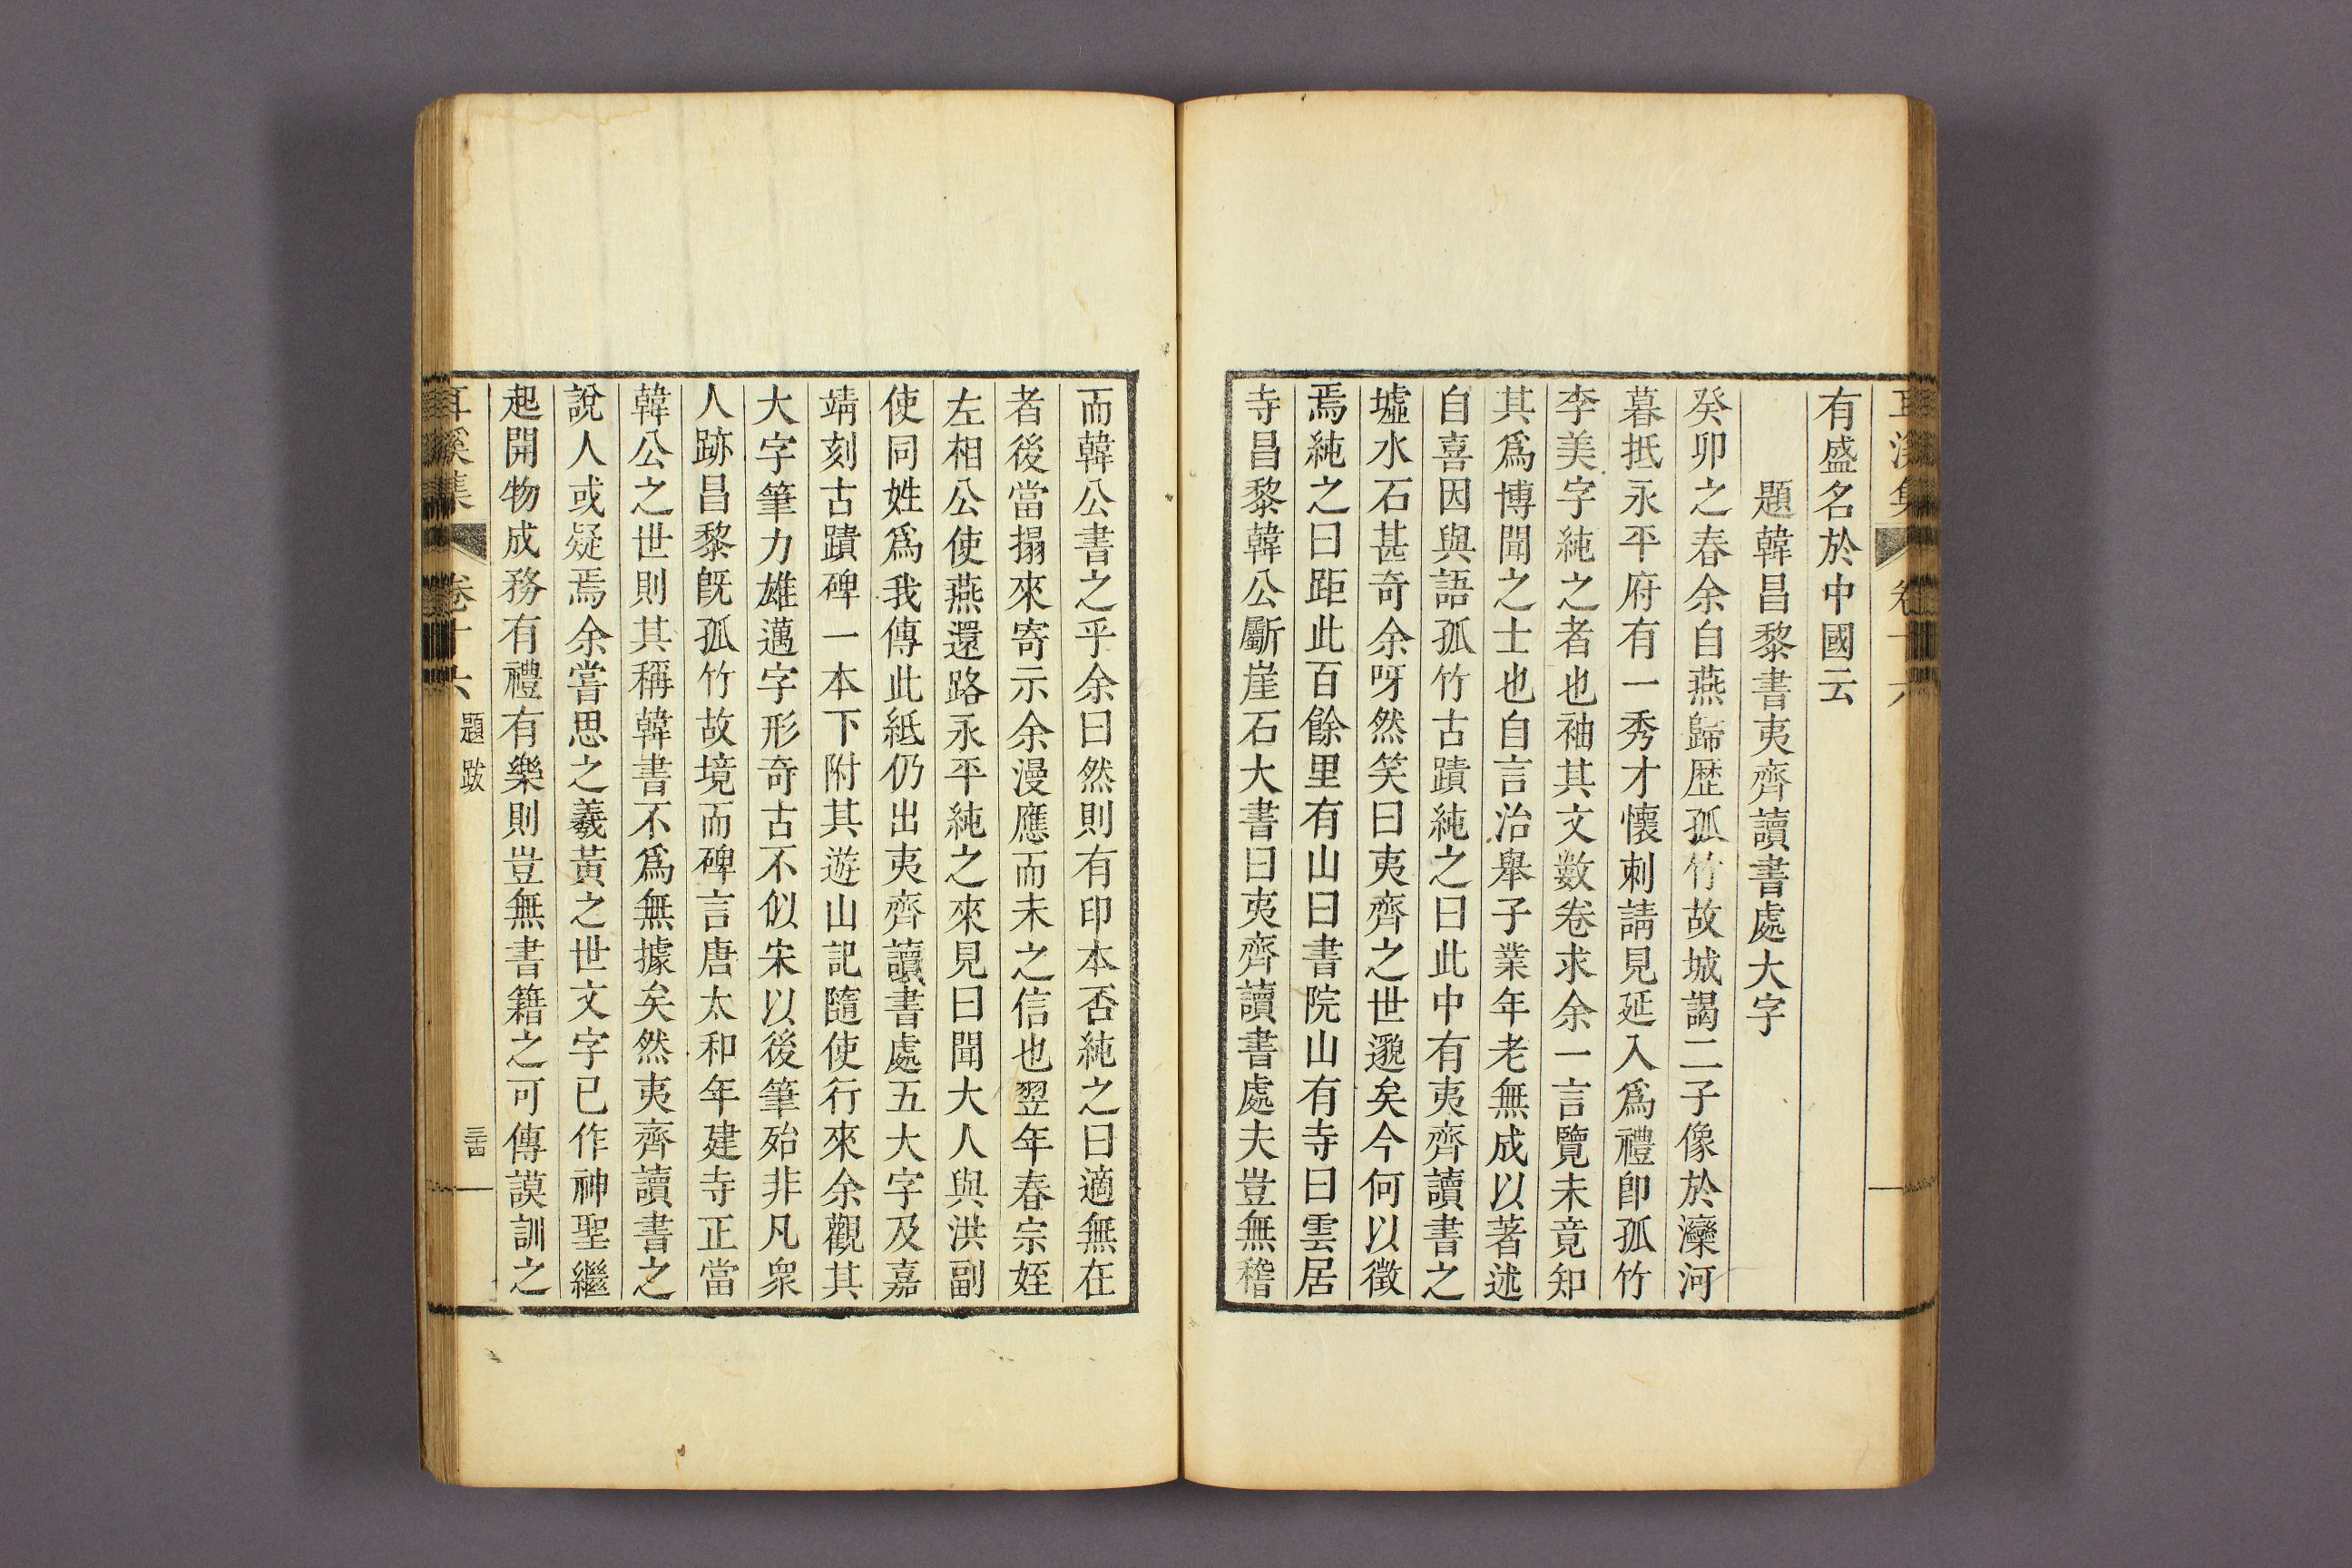 耳溪集 卷十六
有盛名於中國云
題韓昌黎書夷齊讀書處大字
癸卯之春余自燕歸歷孤竹故城謁二子像於灤河
暮抵永平府有一秀才懷刺請見延入爲禮卽孤竹
李美字純之者也袖其文數卷求余一言覽未竟知
其爲博聞之士也自言治舉子業年老無成以著述
自喜因與語孤竹古蹟純之曰此中有夷齊讀書之
墟水石甚奇余呀然笑曰夷齊之世邈矣今何以徵
焉純之曰距此百餘里有山曰書院山有寺曰雲居
寺昌黎韓公斸崖石大書曰夷齊讀書處夫豈無稽
而韓公書之乎余曰然則有印本否純之曰適無在
者後當搨來寄示余漫應而未之信也翌年春宗姪
左相公使燕還路永平純之來見曰聞大人與洪副
使同姓爲我傳此紙仍出夷齊讀書處五大字及嘉
靖刻古蹟碑一本下附其遊山記隨使行來余觀其
大字筆力雄邁字形奇古不似宋以後筆殆非凡衆
人跡昌黎旣孤竹故境而碑言唐太和年建寺正當
韓公之世則其稱韓書不爲無據矣然夷齊讀書之
說人或疑焉余嘗思之羲黃之世文字已作神聖繼
起開物成務有禮有樂則豈無書籍之可傳謨訓之
耳溪集 卷十六 題跋 三十四